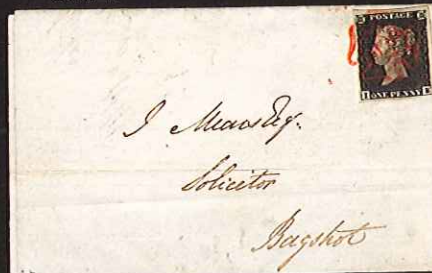 POSTAGE
ONE PENNY
J Mears Esq.
Solicitor
Bagshot